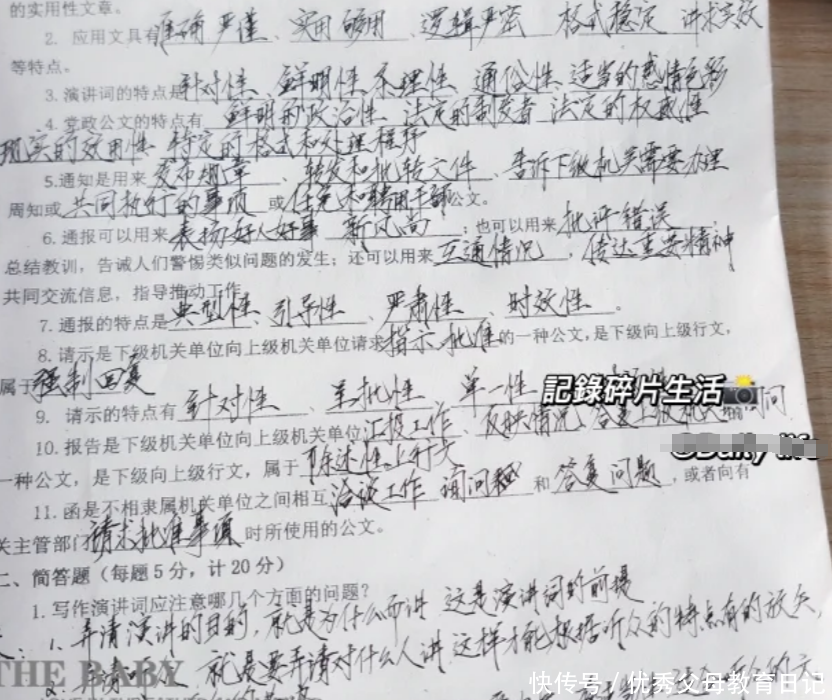 的实用性文章。
2. 应用文具有准确严谨、实用够用、逻辑严密 格式稳定 讲求实效
等特点。
3. 演讲词的特点是针对性、鲜明性 条理性 通俗性 适当的感情色彩
4. 党政公文的特点有 鲜明的政治性 法定的制发者 法定的权威性
现实的效用性 特定的格式和处理程序
5.通知是用来发布规章、转发和批转文件、告诉下级机关需要办理
周知或共同执行的事项或任免和聘用干部公文。
6.通报可以用来表扬好人好事 新风尚；也可以用来批评错误
总结教训，告诫人们警惕类似问题的发生；还可以用来互通情况，传达重要精神
共同交流信息，指导推动工作
7. 通报的特点是典型性、引导性、严肃性、时效性。
8. 请示是下级机关单位向上级机关单位请求指示 批准的一种公文，是下级向上级行文，
属于强制回复
9. 请示的特点有针对性、呈批性、单一性
記錄碎片生活
10. 报告是下级机关单位向上级机关单位汇报工作、反映情况、答复上级机关询问
@Daily life
一种公文，是下级向上级行文，属于陈述性上行文
11. 函是不相隶属机关单位之间相互洽谈工作 询问 和答复问题，或者向有
关主管部门请求批准事项时所使用的公文。
二、简答题（每题5分，计20分）
1. 写作演讲词应注意哪几个方面的问题？
1. 弄清演讲的目的，就是为什么而讲 这是演讲词的前提
就是要弄清对什么人讲 这样才能根据听众的特点有的放矢，
THE BABY
快传号／优秀父母教育日记